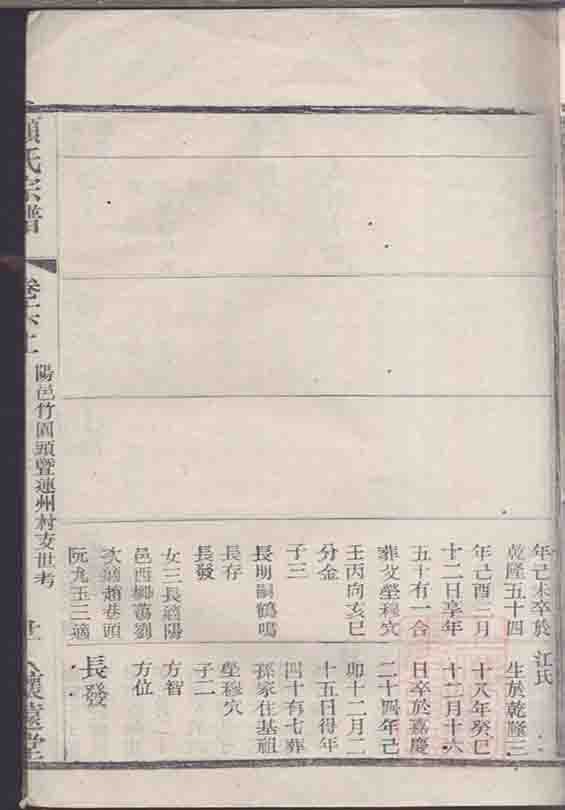 年己未卒於
乾隆五十四
年己酉三月
十二日享年
五十有一合
葬父塋穆穴
壬丙向亥巳
分金
子三
長明嗣鶴鳴
長存
長發
女三長適陽
邑西柳蕩劉
次適趙巷頭
阮九玉三適
江氏
生於乾隆三
十八年癸巳
十二月十六
日卒於嘉慶
二十四年己
卯十二月二
十五日得年
四十有七葬
孫家住基祖
塋穆穴
子二
方智
方位
長發
顧氏宗譜
卷六上
陽邑竹園頭暨蓮州村支世考
懷遠堂